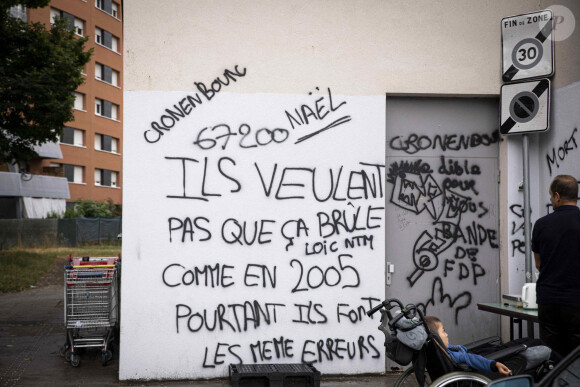 CRONENBOURG
67200 NAËL
ILS VEULENT
PAS QUE ÇA BRÛLE
LOÏC NTM
COMME EN 2005
POURTANT ILS FONT
LES MEME ERREURS
CRONENBOU
dibla
pour
BANDE
DE
FDP
FIN DE ZONE
30
MORT
P